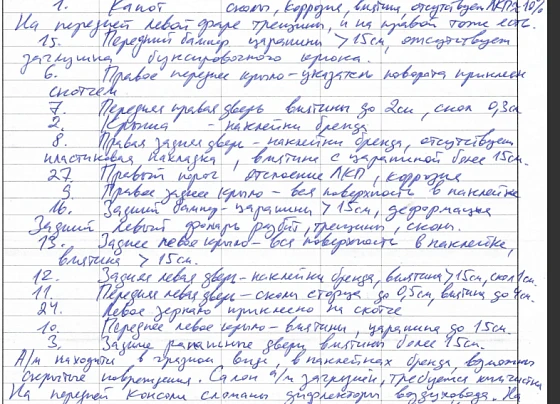 1. Капот сколы, коррозия, вмятина, отсутствует ЛКП > 10%
На передней левой фаре трещины, и на правой тоже есть.
15. Передний бампер, царапины > 15см, отсутствует
заглушка буксировочного крюка.
6. Правое переднее крыло - указатель поворота приклеен
скотчем
7. Передняя правая дверь вмятины до 2см, скол 0,3см
2. Крыша - наклейки бренда
8. Правая задняя дверь - наклейки бренда, отсутствует
пластиковая накладка, вмятине с царапиной более 15см.
27. Правый порог отслоение ЛКП, коррозия
9. Правое заднее крыло - вся поверхность в наклейке
16. Задний бампер - царапины > 15см, деформация
Задний левый фонарь разбит, трещины, сколы.
13. Заднее левое крыло - вся поверхность в наклейке,
вмятина > 15см.
12. Задняя левая дверь - наклейки бренда, вмятина > 15см, скол 1см.
11. Передняя левая дверь - сколы с торца до 0,5см, вмятина до 4см.
24. Левое зеркало приклеено на скотче
10. Переднее левое крыло - вмятины, царапина до 15см.
3. Задние распашные двери вмятины более 15см.
А/м находится в грязном виде, в наклейках бренда, возможны
скрытые повреждения. Салон а/м загрязнён, требуется химчистка
На передней консоли сломаны дефлекторы воздуховода. На